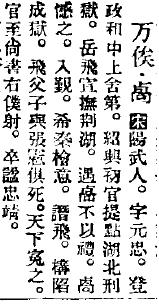 万俟·卨 宋陽武人。字元忠。登
政和中上舍第。紹興初官提點湖北刑
獄。岳飛宣撫荊湖。遇卨不以禮。卨
憾之。入覲。希秦檜意。譖飛。構陷
成獄。飛父子與張憲俱死。天下冤之。
官至尚書右僕射。卒謚忠靖。